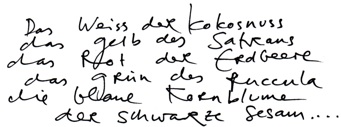 Das Weiss der Kokosnuss
das gelb des Safrans
das Rot der Erdbeere
das grün des Ruccula
die blaue Kornblume
der schwarze Sesam....